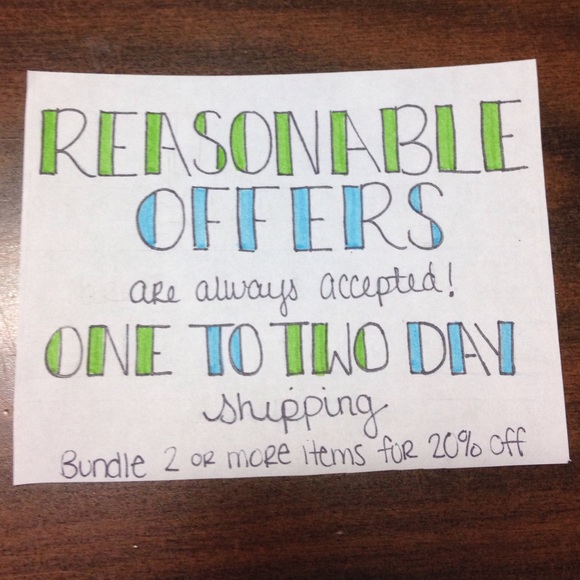 REASONABLE
OFFERS
are always accepted!
ONE TO TWO DAY
shipping
Bundle 2 or more items for 20% off